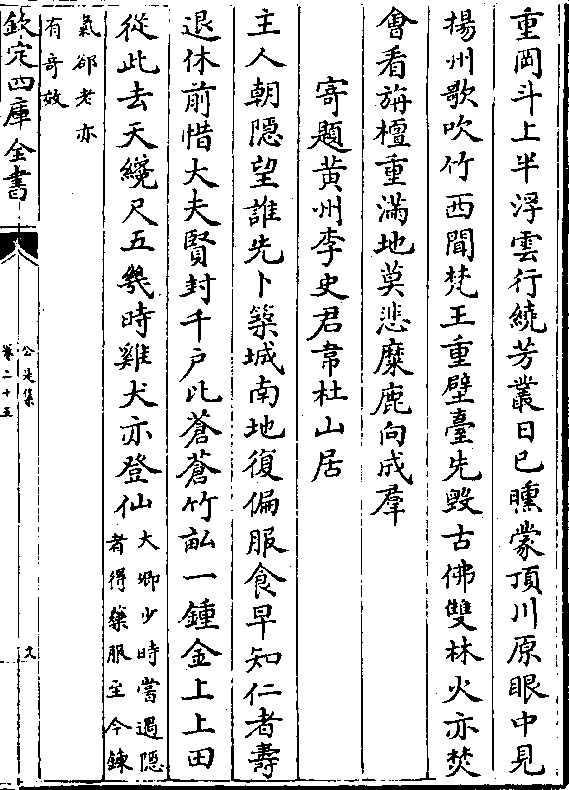 重岡斗上半浮雲行繞芳叢日已曛蒙頂川原眼中見
揚州歌吹竹西聞梵王重壁臺先毀古佛雙林火亦焚
會看旃檀重滿地莫悲麋鹿向成羣
寄題黄州李史君韋杜山居
主人朝隱望誰先卜築城南地復偏服食早知仁者壽
退休前惜大夫賢封千户比蒼蒼竹畝一鍾金上上田
從此去天纔尺五幾時雞犬亦登仙大卿少時嘗遇隠
者得藥服至今鍊
氣郤老亦
有奇效
欽定四庫全書
公是集
卷二十五